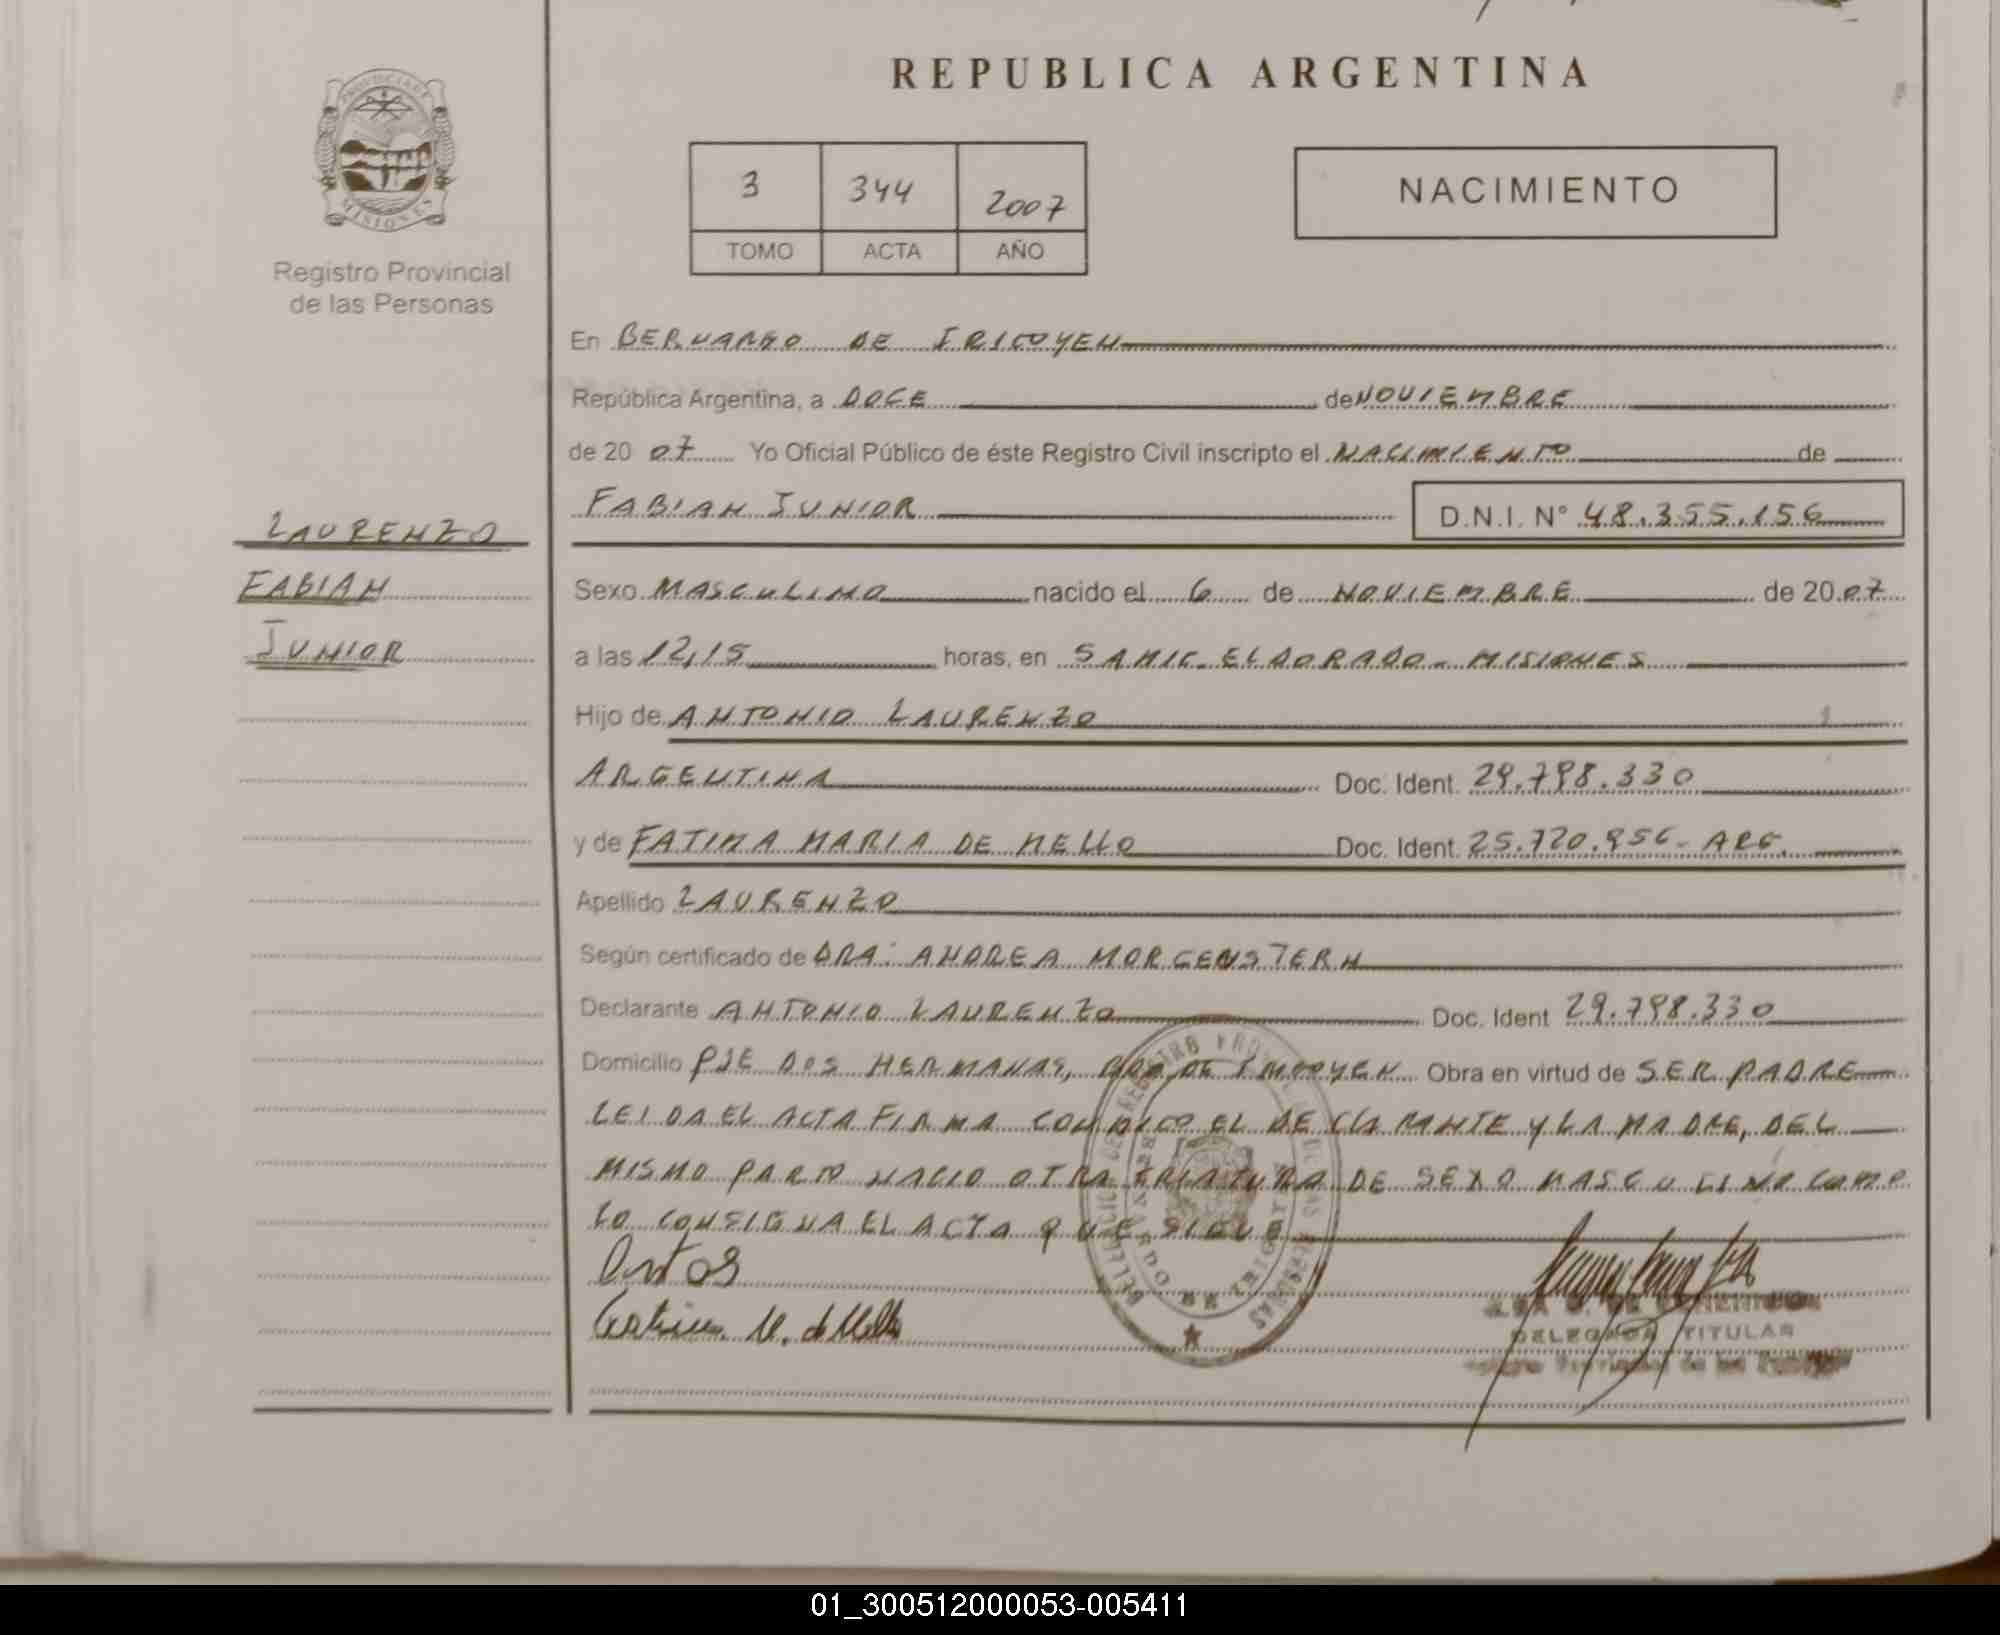 REPUBLICA ARGENTINA
PROVINCIA DE
MISIONES
Registro Provincial
de las Personas
3 344 2007
TOMO ACTA AÑO
NACIMIENTO
En BERNARDO DE IRIGOYEN
República Argentina, a DOCE de NOVIEMBRE
de 20 07 Yo Oficial Público de éste Registro Civil inscripto el NACIMIENTO de
FABIAN JUNIOR D.N.I. N° 48.355.156
LAURENZO
FABIAN
JUNIOR
Sexo MASCULINO nacido el 6 de NOVIEMBRE de 20 07
a las 12,15 horas, en SAMIC. ELDORADO - MISIONES
Hijo de ANTONIO LAURENZO
ARGENTINA Doc. Ident. 29.798.330
y de FATIMA MARIA DE MELLO Doc. Ident. 25.720.956 - ARG.
Apellido LAURENZO
Según certificado de DRA: ANDREA MORGENSTERN
Declarante ANTONIO LAURENZO Doc. Ident 29.798.330
Domicilio PJE DOS HERMANAS, BDO DE IRIGOYEN Obra en virtud de SER PADRE
LEIDA EL ACTA FIRMA CONMIGO EL DECLARANTE Y LA MADRE, DEL
MISMO PARTO NACIO OTRA CRIATURA DE SEXO MASCULINO COMO
LO CONSIGNA EL ACTA QUE SIGUE
M. de Mello
DELEGADA TITULAR
01_300512000053-005411